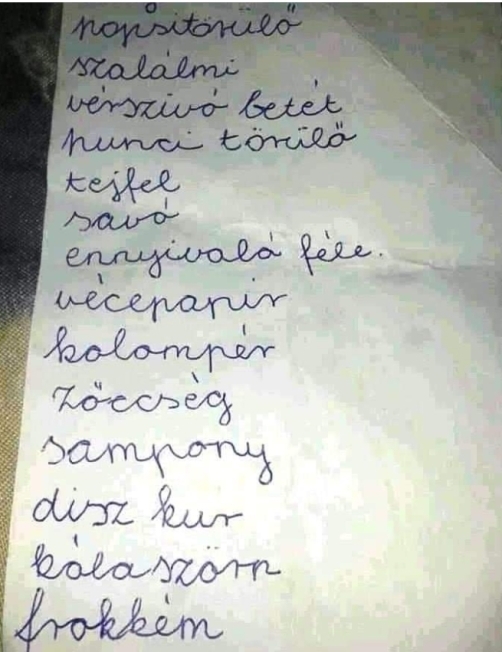 popsitörülő
szalálmi
vérszivó betét
punci törülő
tejfel
savó
ennyivaló féle.
vécepapir
kolompér
zőccség
sampony
disz kur
kólaszörp
frokkém